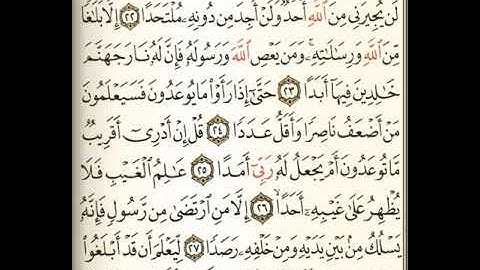 لَن يُجِيرَنِي مِنَ ٱللَّهِ أَحَدٌ وَلَنْ أَجِدَ مِن دُونِهِۦ مُلْتَحَدًا ٢٢ إِلَّا بَلَٰغًا
مِّنَ ٱللَّهِ وَرِسَٰلَٰتِهِۦۚ وَمَن يَعْصِ ٱللَّهَ وَرَسُولَهُۥ فَإِنَّ لَهُۥ نَارَ جَهَنَّمَ
خَٰلِدِينَ فِيهَآ أَبَدًا ٢٣ حَتَّىٰٓ إِذَا رَأَوْا۟ مَا يُوعَدُونَ فَسَيَعْلَمُونَ
مَنْ أَضْعَفُ نَاصِرًا وَأَقَلُّ عَدَدًا ٢٤ قُلْ إِنْ أَدْرِىٓ أَقَرِيبٌ
مَّا تُوعَدُونَ أَمْ يَجْعَلُ لَهُۥ رَبِّىٓ أَمَدًا ٢٥ عَٰلِمُ ٱلْغَيْبِ فَلَا
يُظْهِرُ عَلَىٰ غَيْبِهِۦٓ أَحَدًا ٢٦ إِلَّا مَنِ ٱرْتَضَىٰ مِن رَّسُولٍ فَإِنَّهُۥ
يَسْلُكُ مِنۢ بَيْنِ يَدَيْهِ وَمِنْ خَلْفِهِۦ رَصَدًا ٢٧ لِّيَعْلَمَ أَن قَدْ أَبْلَغُوا۟